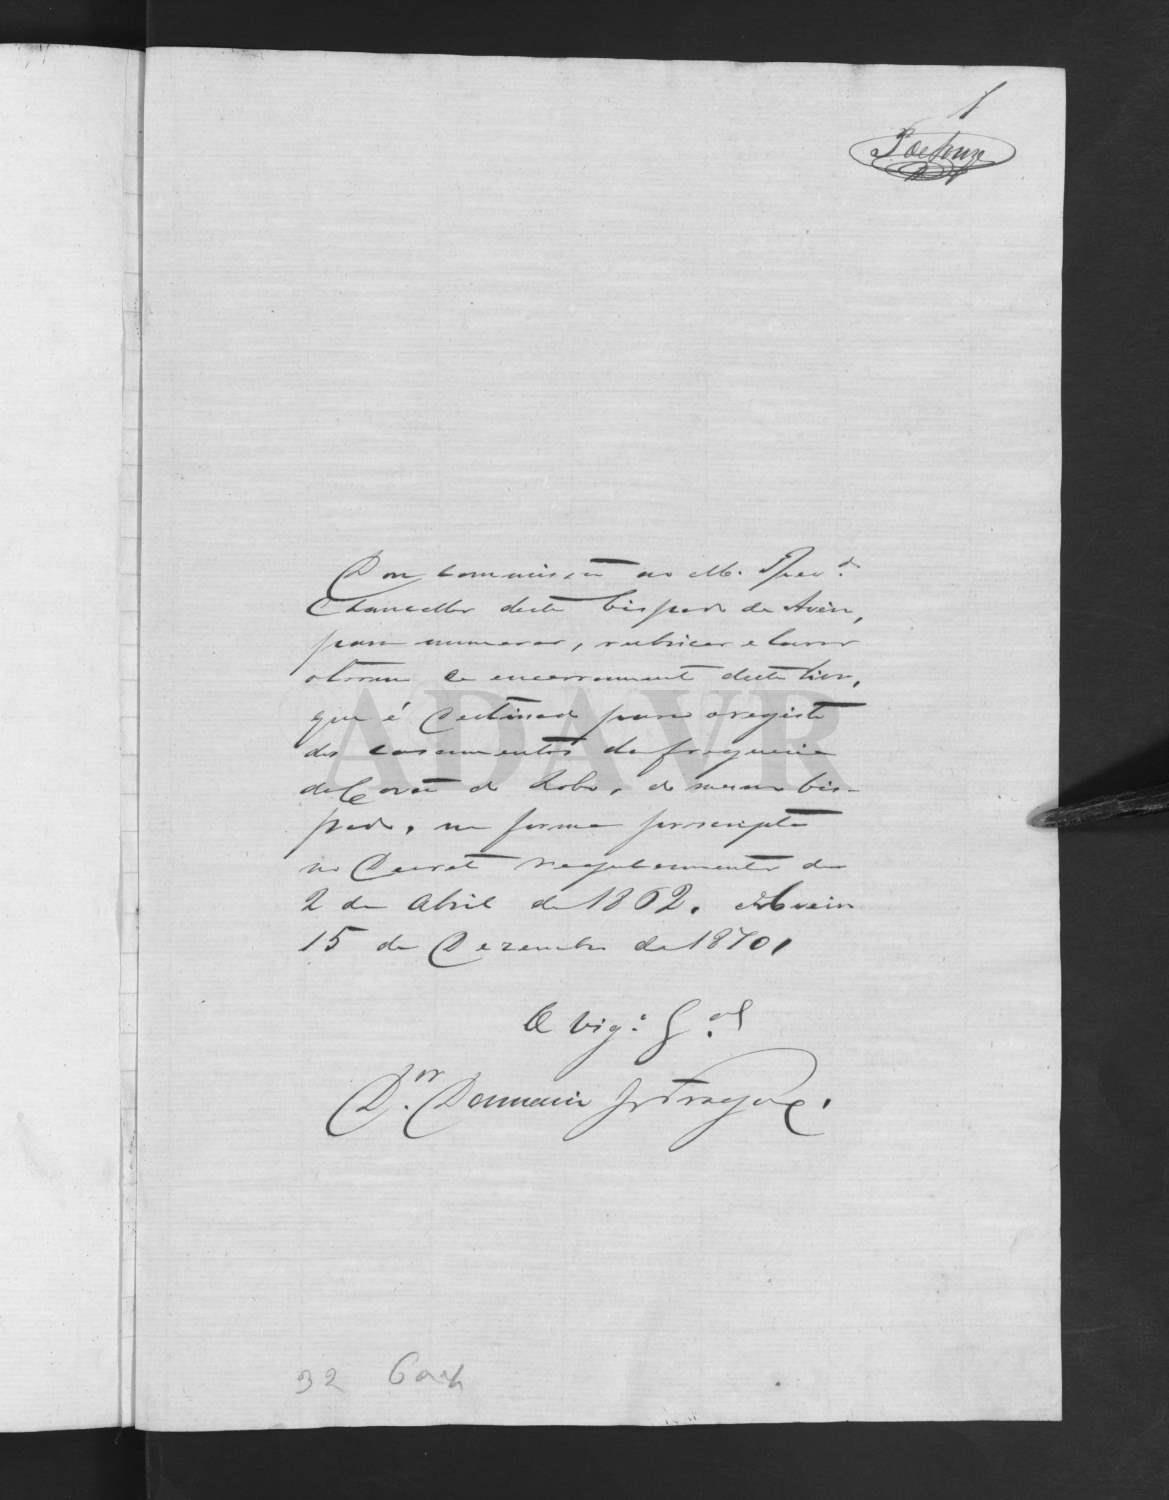 1
Dou commissão ao M. Rev.do
Chanceller deste bispado de Aveiro,
para numerar, rubricar e lavrar
o termo de encerramento deste livro,
que é destinado para o registo
dos casamentos da freguezia
de Covão do Lobo, do mesmo bis-
pado, na forma prescripta
no Decreto regulamentar de
2 de Abril de 1862. Aveiro
15 de Dezembro de 1870,
O Vig.o G.al
D.or
32 Cax
ADAVR